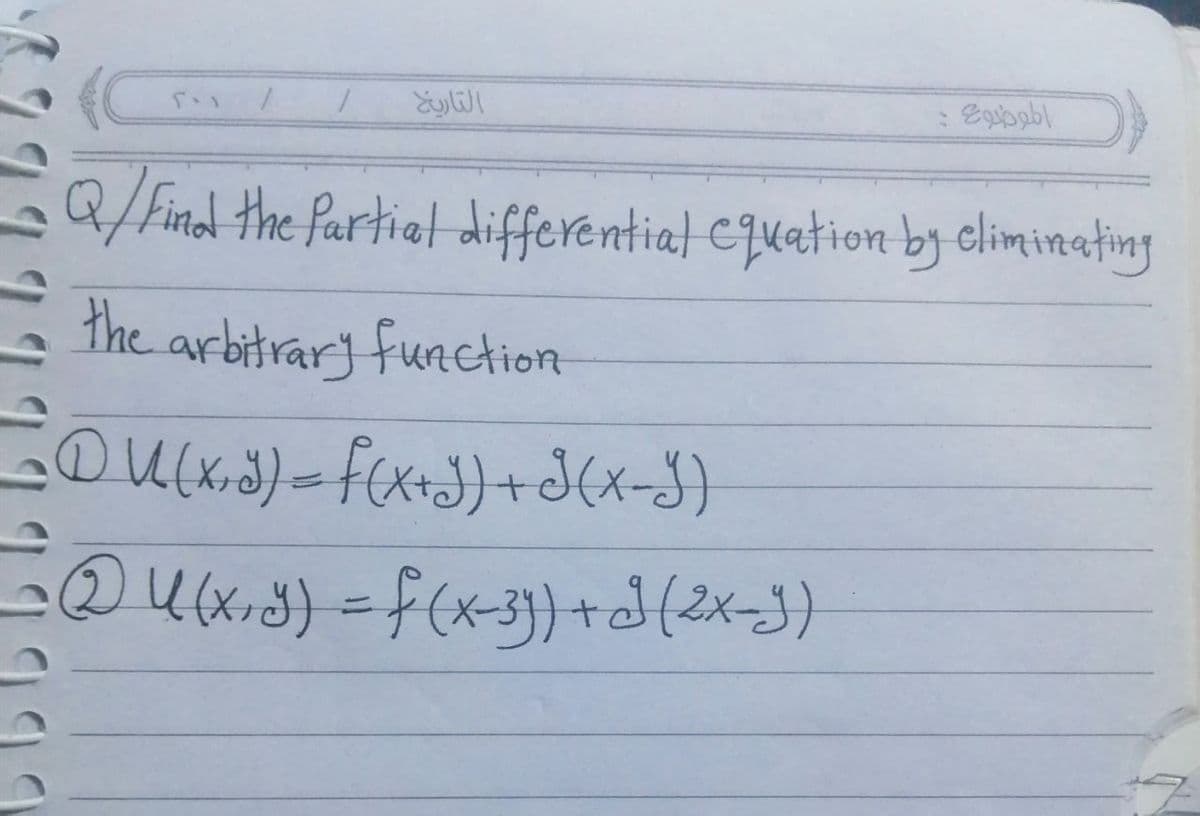 الموضوع :
التاريخ / / ٢٠٠١
Q/Find the Partial differential equation by eliminating
the arbitrary function
① U(x,y) = f(x+y) + g(x-y)
② U(x,y) = f(x-3y) + g(2x-y)